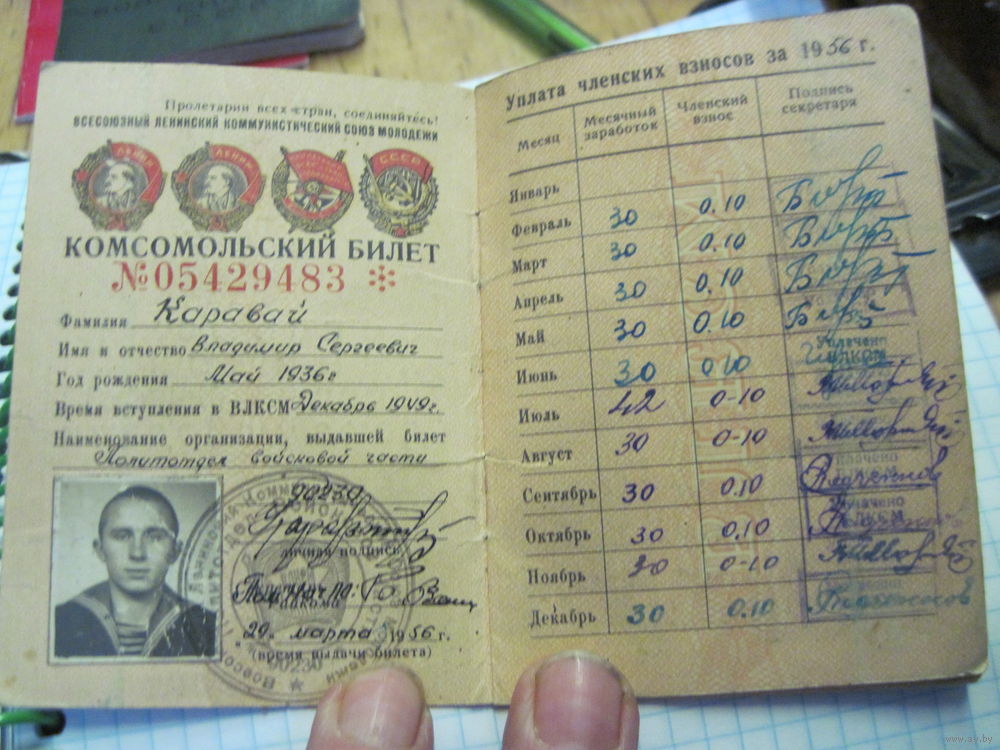 Пролетарии всех стран, соединяйтесь!
ВСЕСОЮЗНЫЙ ЛЕНИНСКИЙ КОММУНИСТИЧЕСКИЙ СОЮЗ МОЛОДЕЖИ
ЛЕНИН
ЛЕНИН
СССР
КОМСОМОЛЬСКИЙ БИЛЕТ
№05429483
Фамилия Каравай
Имя и отчество Владимир Сергеевич
Год рождения Май 1936г
Время вступления в ВЛКСМ Декабрь 1949г.
Наименование организации, выдавшей билет
Политотдел войсковой части
90230
личная подпись
райкома
29. марта 1956 г.
(время выдачи билета)
90230
Уплата членских взносов за 1956 г.
Месяц Месячный заработок Членский взнос Подпись секретаря
Январь
Февраль 30 0.10
Март 30 0.10
Апрель 30 0.10
Май 30 0.10
Июнь 30 0.10
Уплачено
ВЛКСМ
Июль 42 0-10
Август 30 0-10
Сентябрь 30 0.10
Уплачено
ВЛКСМ
Октябрь 30 0.10
Ноябрь 30 0-10
Декабрь 30 0.10
www.ay.by